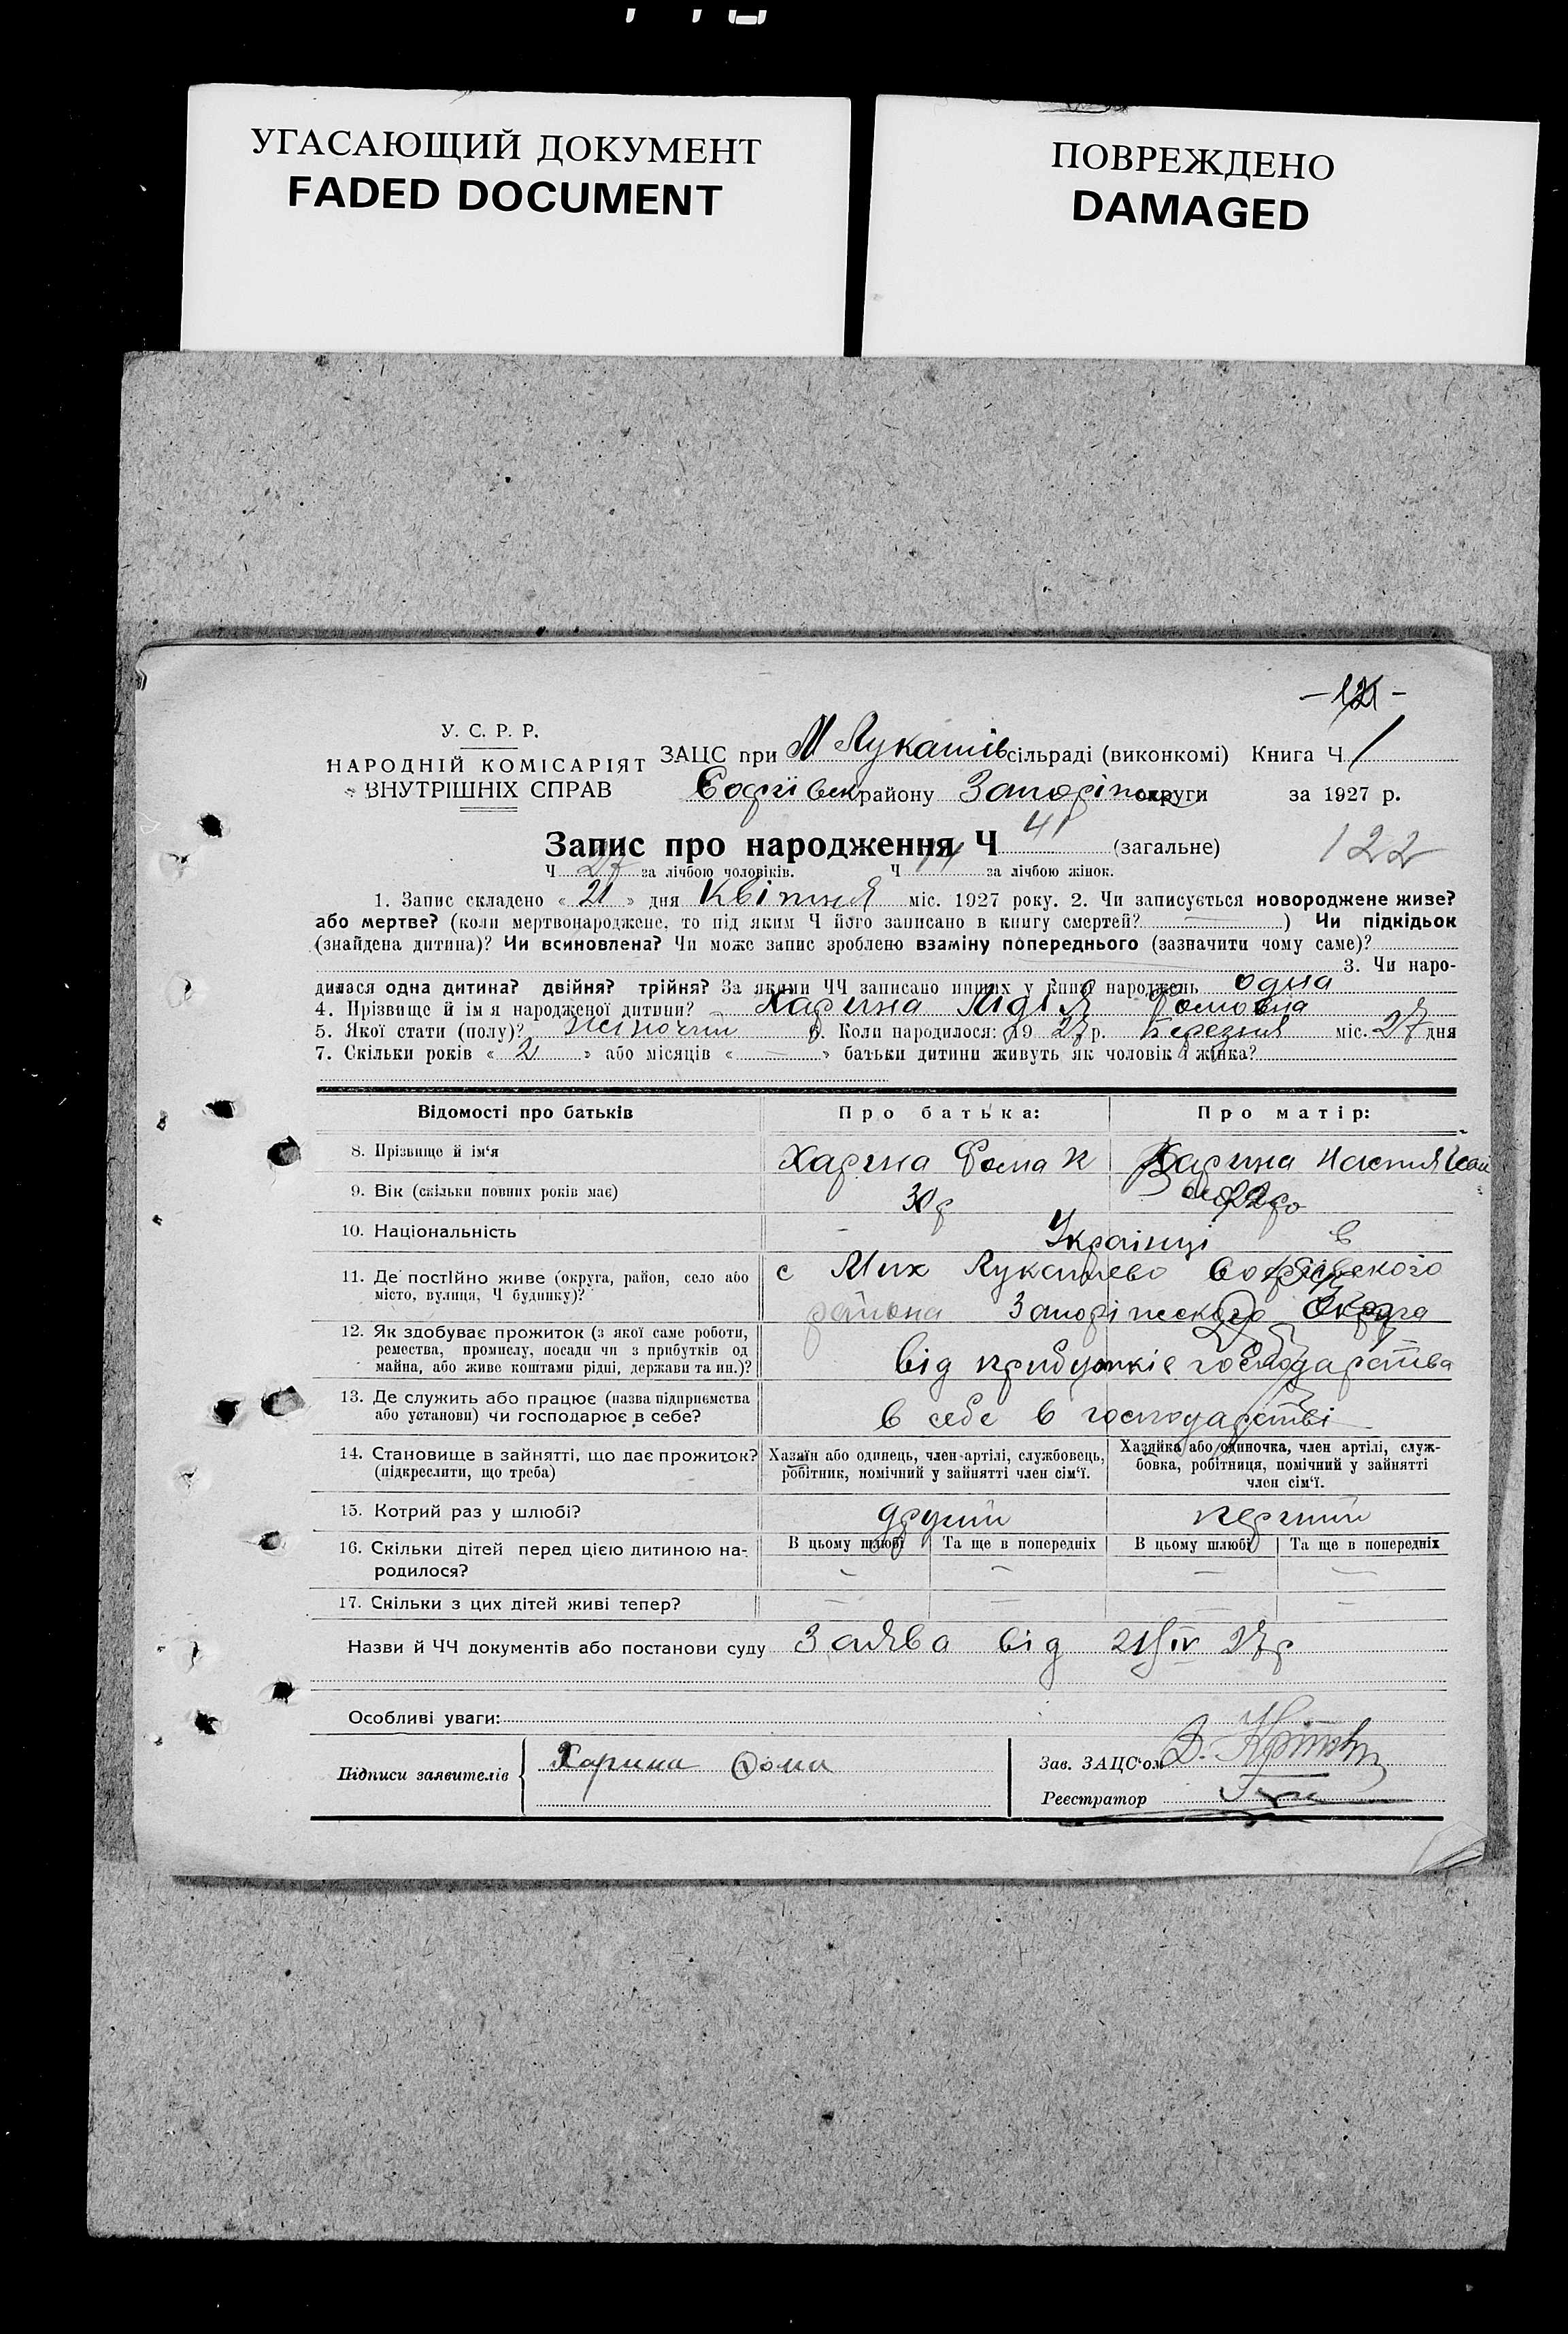 УГАСАЮЩИЙ ДОКУМЕНТ
FADED DOCUMENT
ПОВРЕЖДЕНО
DAMAGED
У. С. Р. Р.
НАРОДНІЙ КОМІСАРІЯТ
ВНУТРІШНІХ СПРАВ
ЗАЦС при М Лукашів сільраді (виконкомі) Книга Ч 1
Софіївськ району Запоріжск округи за 1927 р.
Запис про народження Ч 41 (загальне) 122
Ч 27 за лічбою чоловіків. Ч 14 за лічбою жінок.
1. Запис складено « 21 » дня Квітня міс. 1927 року. 2. Чи записується новороджене живе?
або мертве? (коли мертвонароджене, то під яким Ч його записано в книгу смертей? ) Чи підкідьок
(знайдена дитина)? Чи всиновлена? Чи може запис зроблено взаміну попереднього (зазначити чому саме)?
3. Чи наро-
дилася одна дитина? двійня? трійня? За якими ЧЧ записано инших у книзі народжень одна
4. Прізвище й ім'я народженої дитини? Харина Лідія Фомовна
5. Якої стати (полу)? жіночий 6. Коли народилося: 19 27 р. Березня міс. 27 дня
7. Скільки років « 2 » або місяців « — » батьки дитини живуть як чоловік і жінка?
Відомості про батьків
Про батька:
Про матір:
8. Прізвище й ім'я
Харина Фома К
Харина Настя
9. Вік (скільки повних років має)
30 р
22
10. Національність
Українці
11. Де постійно живе (округа, район, село або
місто, вулиця, Ч будинку)?
с Мих Лукашево Софіївского
района Запоріжского Округа
12. Як здобуває прожиток (з якої саме роботи,
ремества, промислу, посади чи з прибутків од
майна, або живе коштами рідні, держави та ин.)?
від прибутків господарства
13. Де служить або працює (назва підприємства
або установи) чи господарює в себе?
в себе в господарстві
14. Становище в зайнятті, що дає прожиток?
(підкреслити, що треба)
Хазяїн або одинець, член артілі, службовець,
робітник, помічний у зайнятті член сім'ї.
Хазяйка або одиночка, член артілі, служ-
бовка, робітниця, помічний у зайнятті
член сім'ї.
15. Котрий раз у шлюбі?
другий
перший
16. Скільки дітей перед цією дитиною на-
родилося?
В цьому шлюбі
Та ще в попередніх
В цьому шлюбі
Та ще в попередніх
17. Скільки з цих дітей живі тепер?
Назви й ЧЧ документів або постанови суду Заява від 21/IV 27 р
Особливі уваги:
Підписи заявителів
Харина Фома
Зав. ЗАЦС'ом
Реєстратор